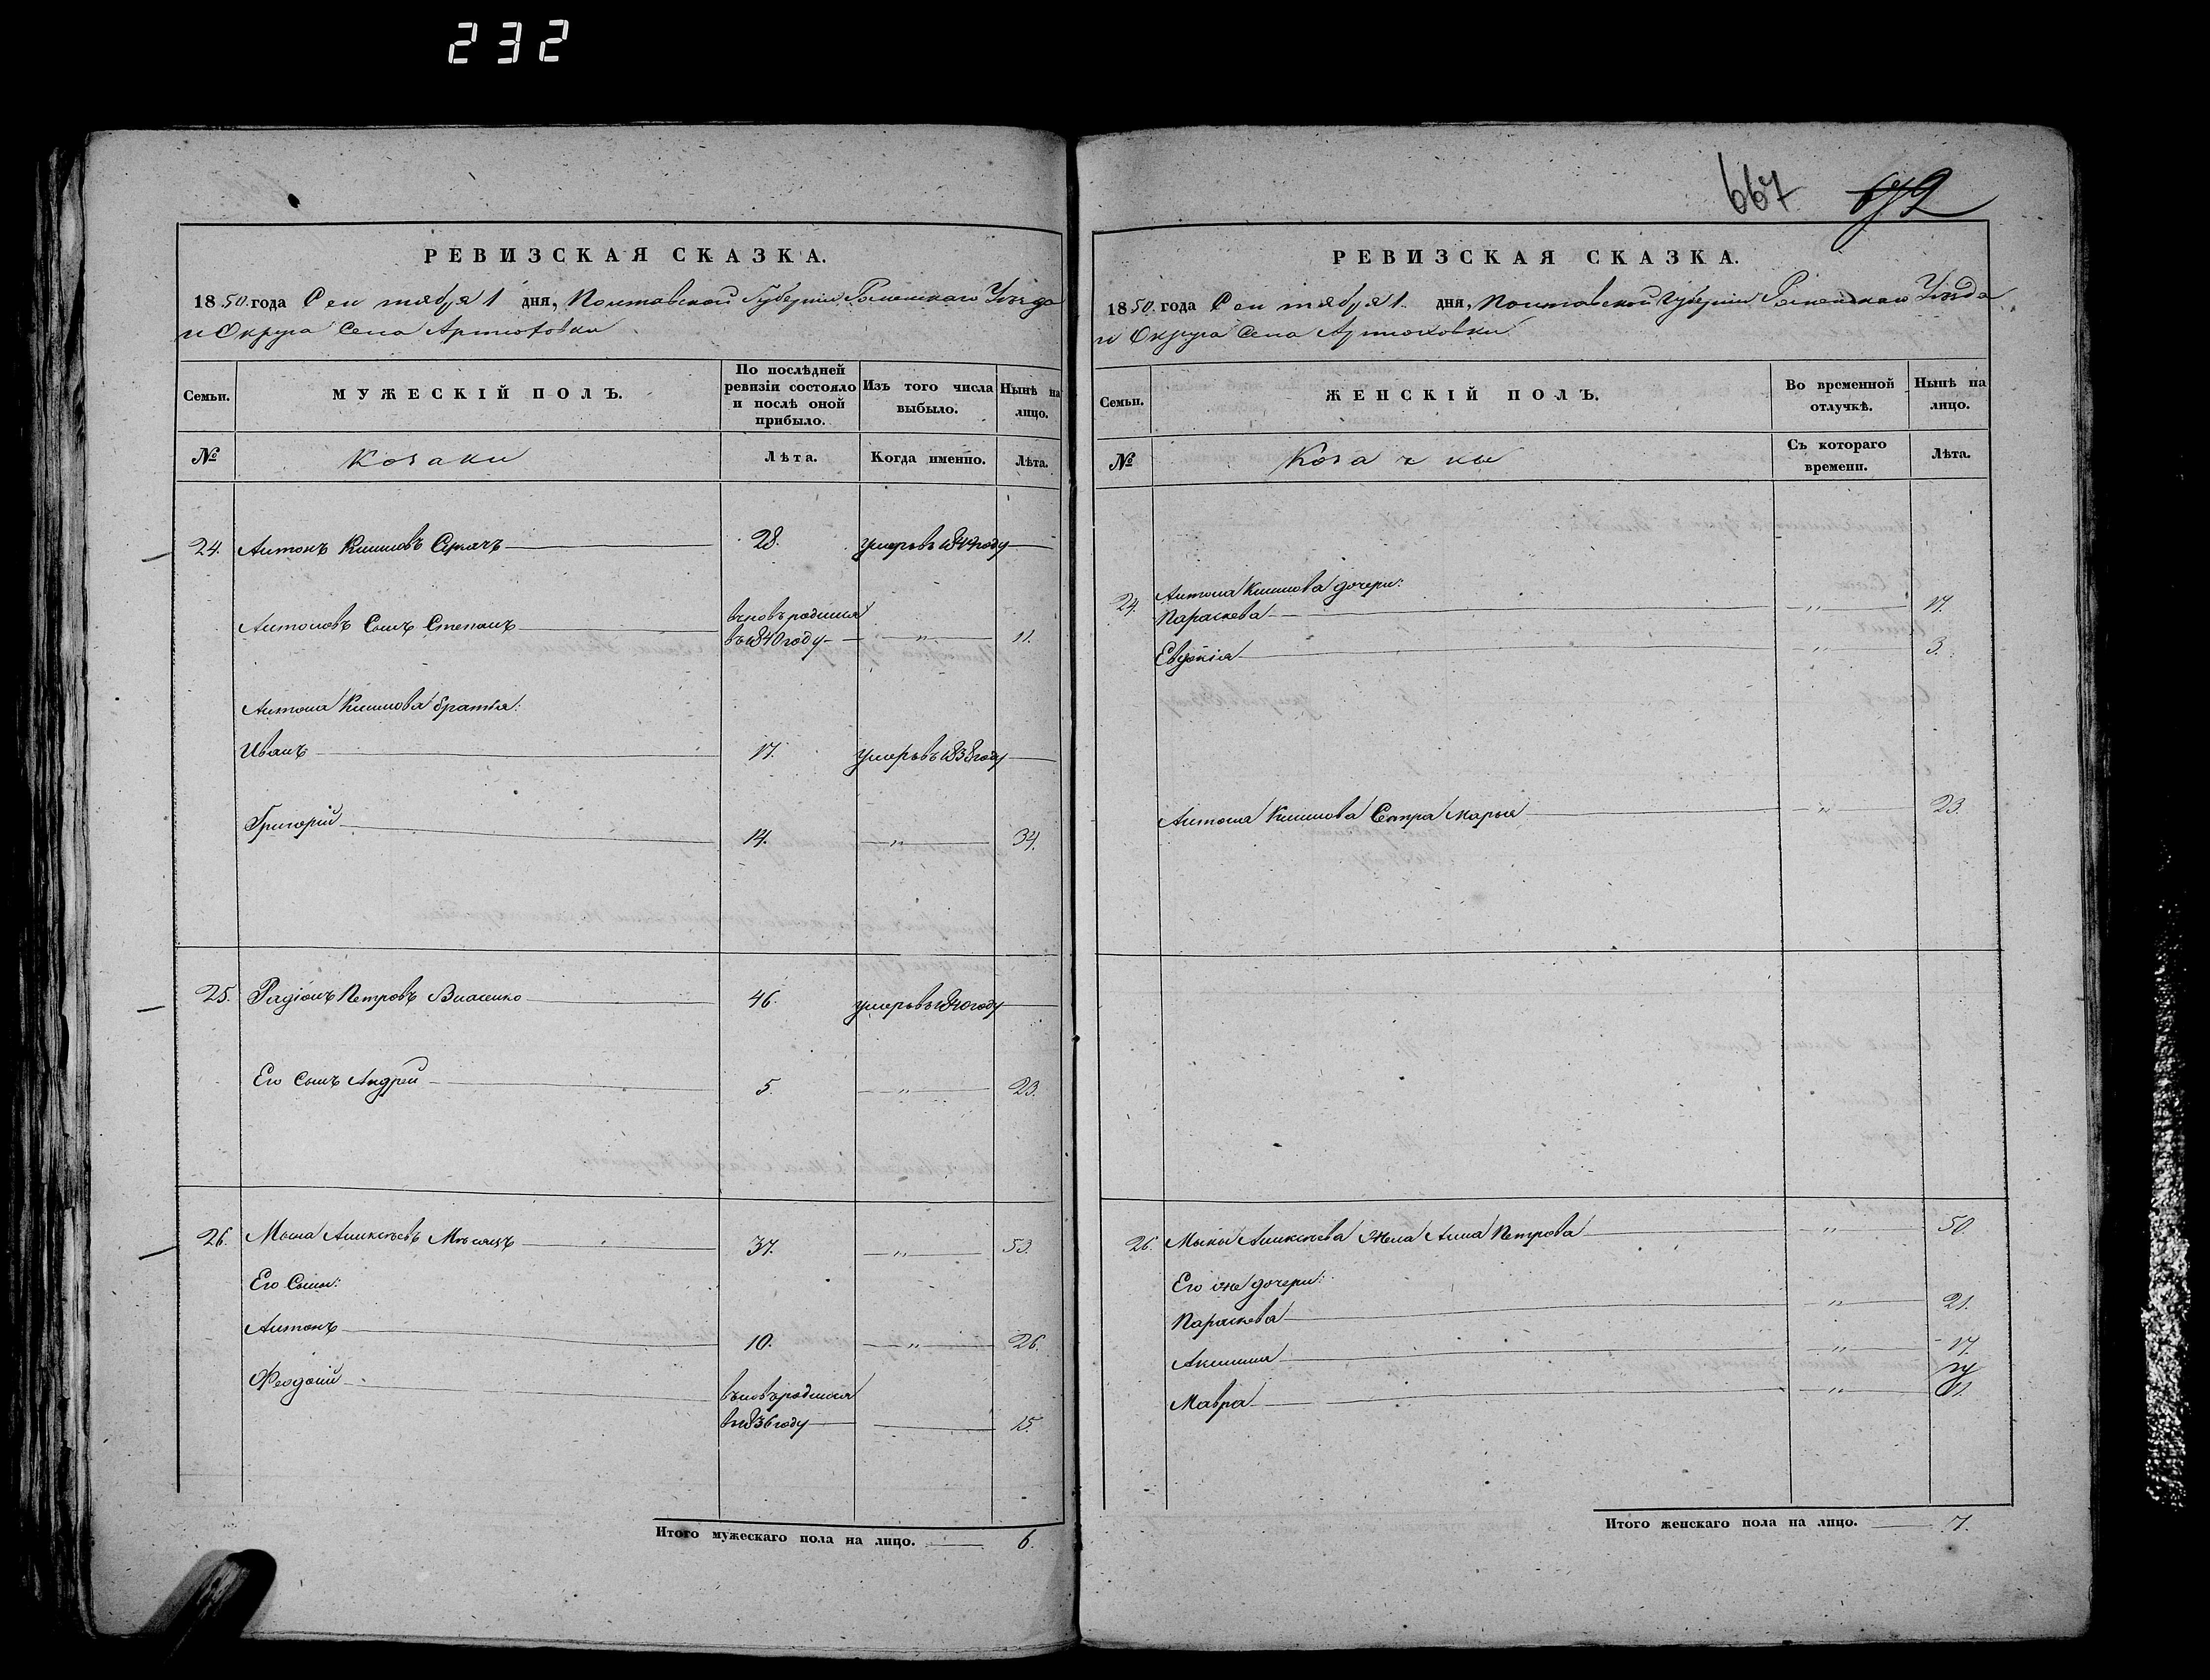 232
РЕВИЗСКАЯ СКАЗКА.
1850. года Сентября 1 дня, Полтавской Губернии Роменскаго Уезда
и Округа Села Артюховки
Семьи.
МУЖЕСКІЙ ПОЛЪ.
По послѣдней
ревизіи состояло
и послѣ оной
прибыло.
Изъ того числа
выбыло.
Нынѣ на
лицо.
№
Козаки
Лѣта.
Когда именно.
Лѣта.
24. Антонъ Климовъ 28. умеръ въ году
Антоновъ Сынъ Степанъ вновь родился
въ 1840 году " 11.
Антона Климова братья:
Иванъ 17. умеръ въ 1838 году
Григорій 14. " 34.
25. Радіонъ Петровъ Власенко 46. умеръ въ 1840 году
Его Сынъ Андрей 5. " 23.
26. Мына Аликсѣевъ Мѣсяцъ 37. " 53.
Его Сыны:
Антонъ 10. " 26.
Феодосій вновь родился
въ 1836 году 15.
Итого мужескаго пола на лицо. 6.
667 672
РЕВИЗСКАЯ СКАЗКА.
1850. года Сентября 1. дня, Полтавской Губернии Роменскаго Уезда
и Округа Села Артюховки
Семьи.
ЖЕНСКІЙ ПОЛЪ.
Во временной
отлучкѣ.
Нынѣ на
лицо.
№
Козачки
Съ котораго
времени.
Лѣта.
24. Антона Климова дочери:
Параскева " 17.
Евдокія " 3.
Антона Климова Сестра Марья " 23.
26. Мыны Аликсѣева жена Анна Петрова " 50.
Его же дочери:
Параскева " 21.
Акилина " 17.
Мавра " 11.
Итого женскаго пола на лицо. 7.